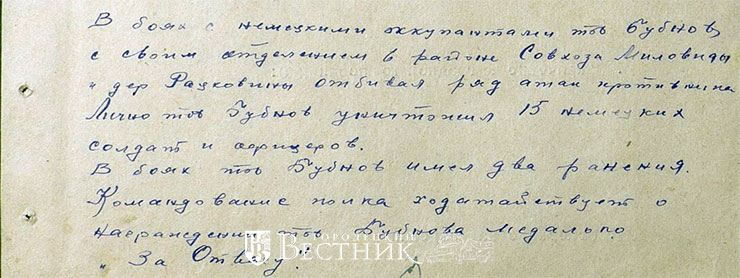 В боях с немецкими оккупантами тов Бубнов
с своим отделением в районе Совхоза Миловиды
и дер Рацковичи отбивал ряд атак противника
Лично тов Бубнов уничтожил 15 немецких
солдат и офицеров.
В боях тов Бубнов имел два ранения.
Командование полка ходатайствует о
награждении тов Бубнова медалью
"За Отвагу"
ВЕСТНИК